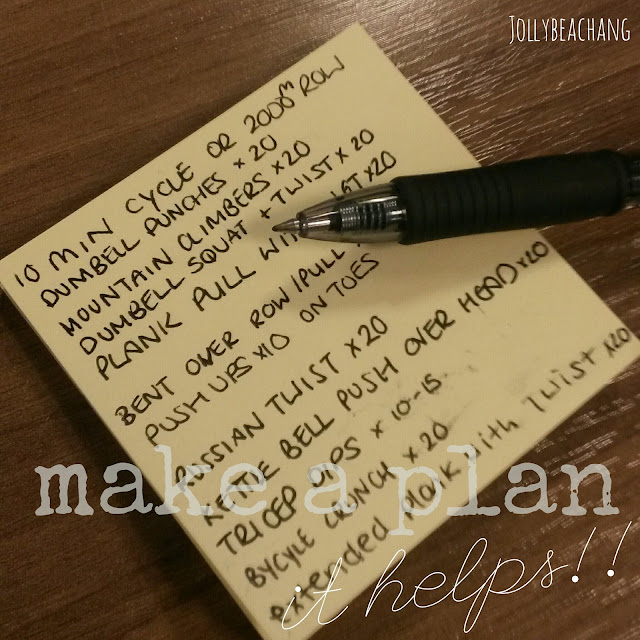 JOLLYBEACHANG
10 MIN CYCLE OR 2000M ROW
DUMBELL PUNCHES x 20
MOUNTAIN CLIMBERS x20
DUMBELL SQUAT + TWIST x 20
PLANK PULL x20
BENT OVER ROW/PULL
PUSH UPS x10 ON TOES
RUSSIAN TWIST x 20
KETTLE BELL PUSH OVER HEAD x20
TRICEP DIPS x 10-15.
BYCYLE CRUNCH x 20
Extended Plank with Twist x20
make a plan
it helps!!